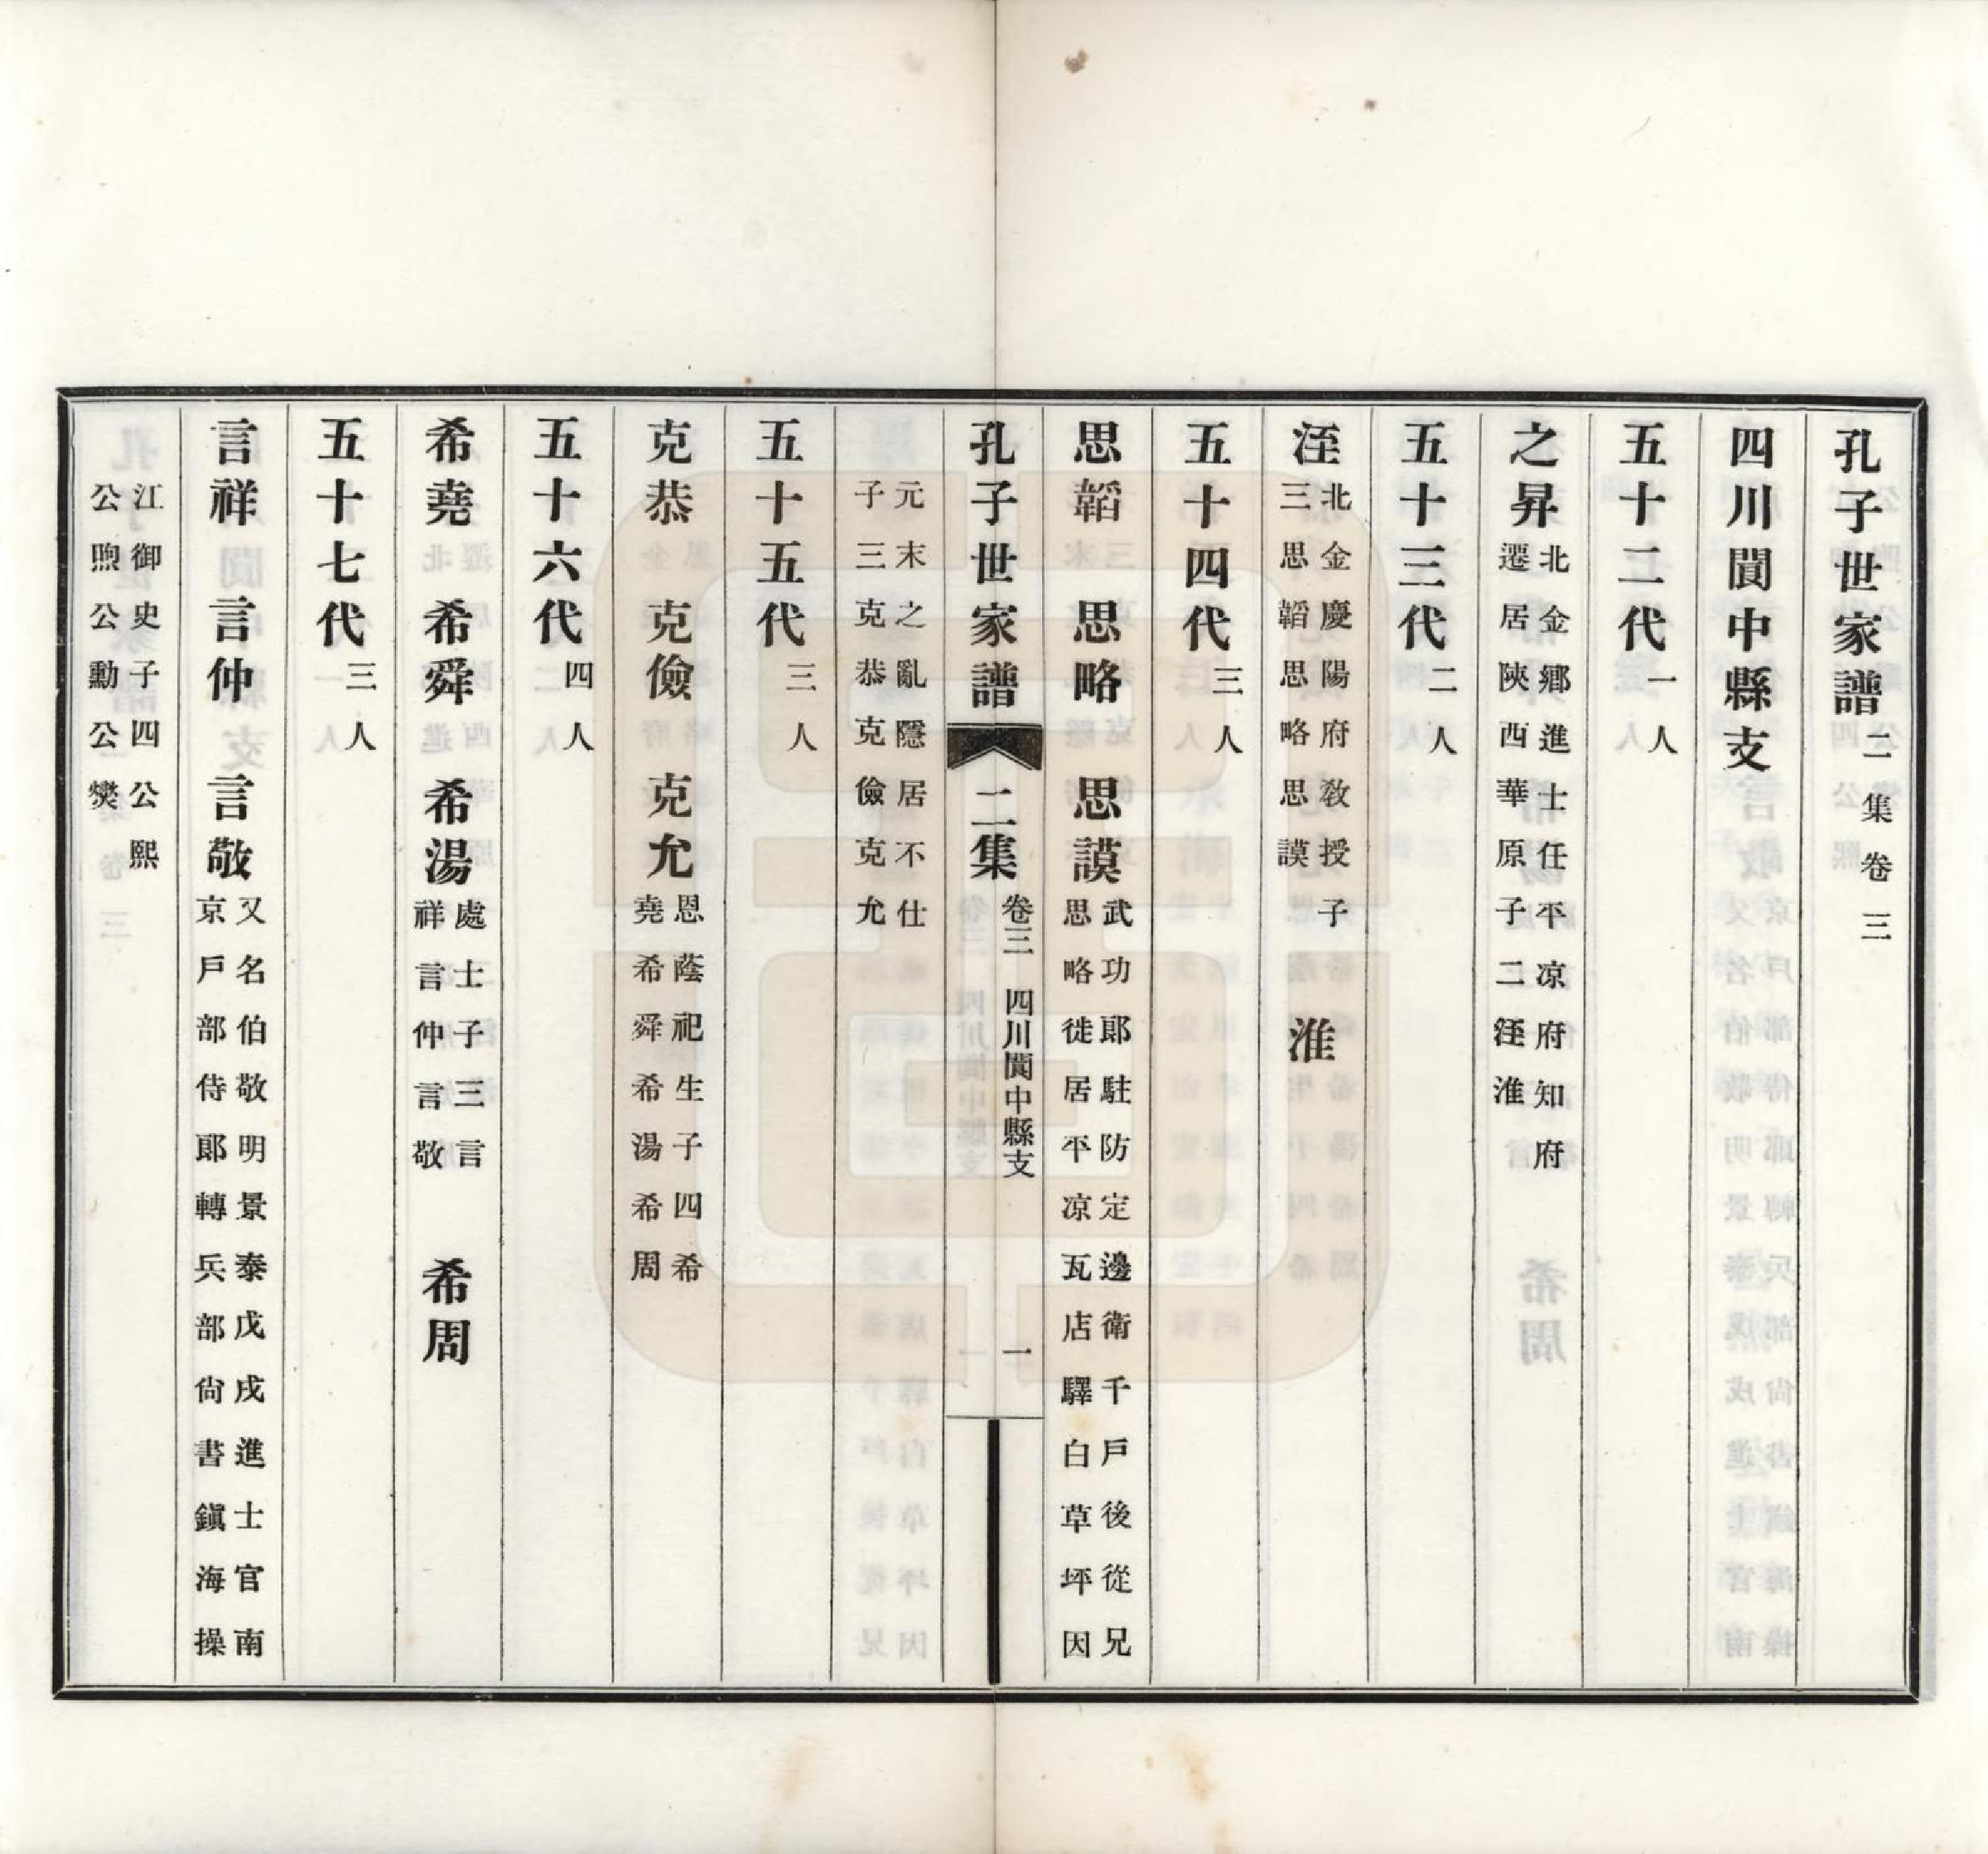 孔子世家譜 二集卷三
四川閬中縣支
五十二代 一人
之昇 北金鄉進士任平凉府知府
遷居陝西華原子二洷淮
五十三代 二人
洷 北金慶陽府敎授子
三思韜思略思謨
淮
五十四代 三人
思韜 思略 思謨 武功郞駐防定邊衛千戶後從兄
思略徙居平凉瓦店驛白草坪因
孔子世家譜 二集 卷三 四川閬中縣支 一
元末之亂隱居不仕
子三克恭克儉克允
五十五代 三人
克恭 克儉 克允 恩蔭祀生子四希
堯希舜希湯希周
五十六代 四人
希堯 希舜 希湯 處士子三言
祥言仲言敬
希周
五十七代 三人
言祥 言仲 言敬 又名伯敬明景泰戊戌進士官南
京戶部侍郞轉兵部尙書鎭海操
江御史子四公熙
公煦公勳公爕